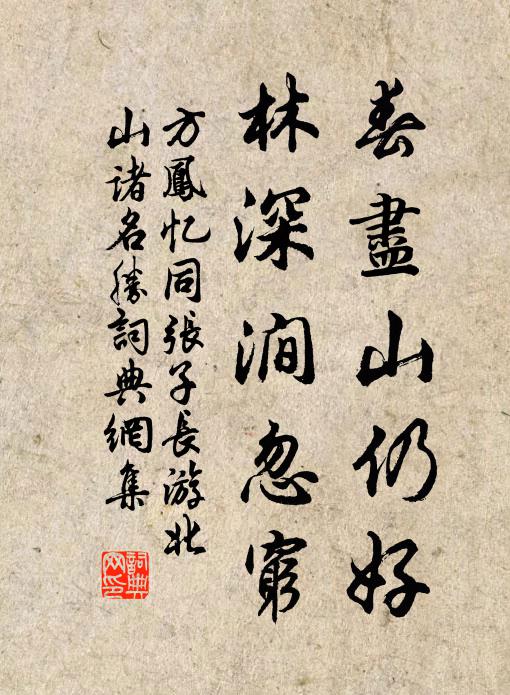 春盡山仍好
林深澗忽窮
方鳳忆同張子長游北
山诸名勝詞典網集
詞典
网印